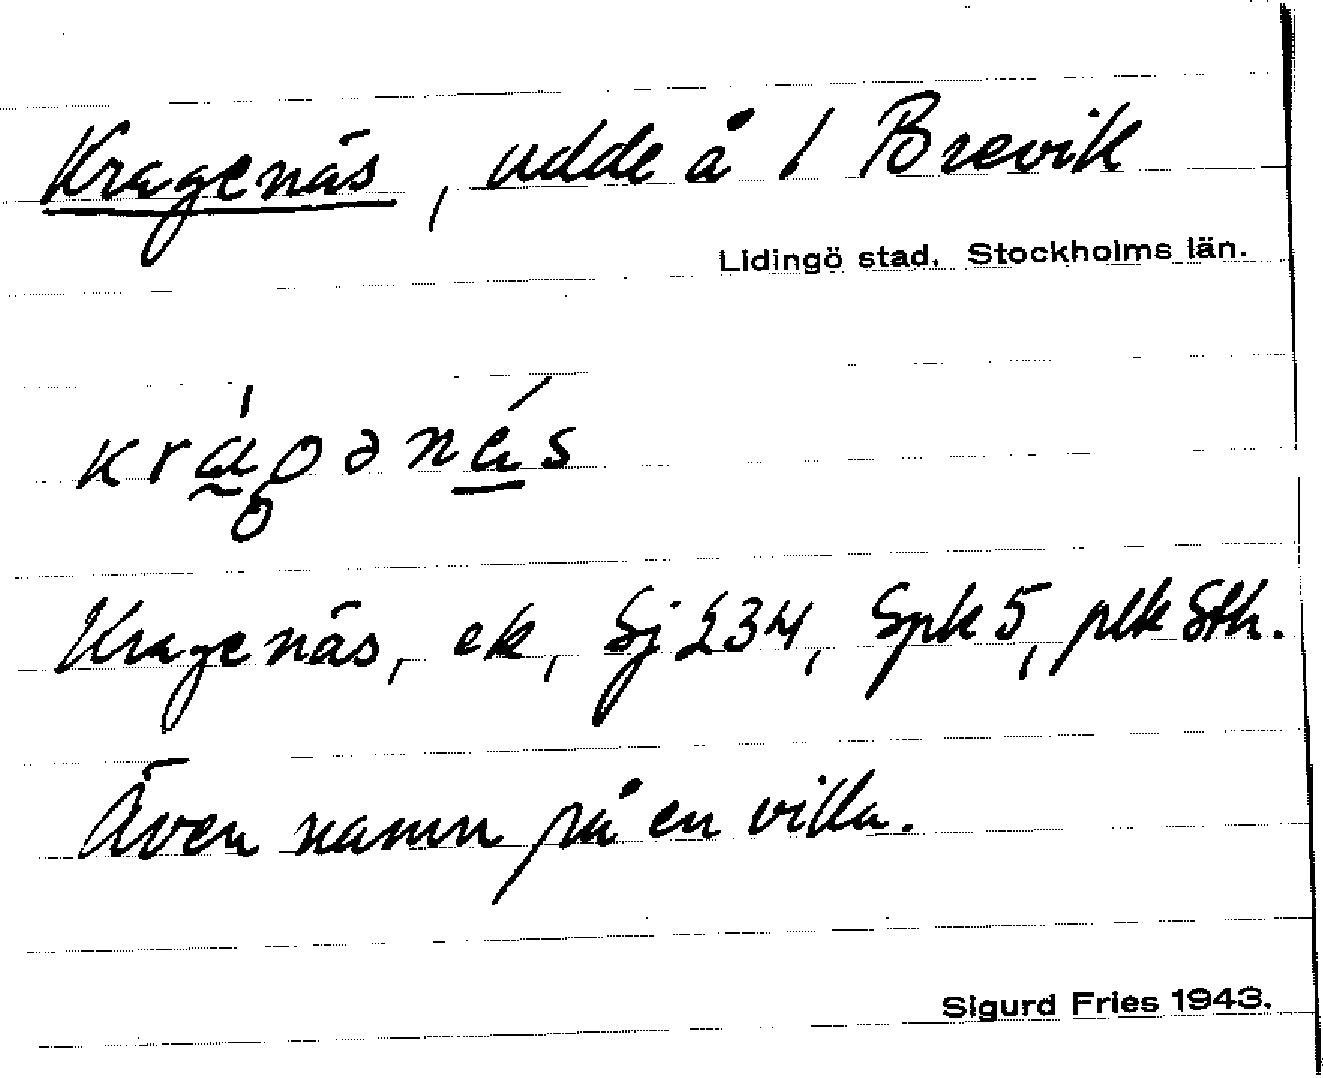 Kragenäs, udde å 1 Brevik
Lidingö stad, Stockholms län.
krágənä́s
Kragenäs, ek, Sj 234, Spk 5, plk Sth.
Även namn på en villa.
Sigurd Fries 1943.